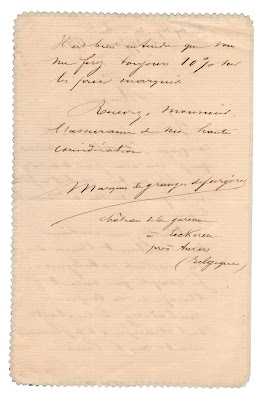 Il est bien entendu que vous
me ferez toujours 10% sur
les prix marqués
Recevez, monsieur,
l'assurance de ma haute
considération
Marquis de granges de surgères
château de la garenne
à Eeckeren
près Anvers
(Belgique)